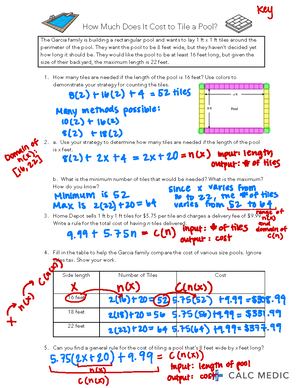 How Much Does It Cost to Tile a Pool?
Key
The Garcia family is building a rectangular pool and wants to lay 1 ft x 1 ft tiles around the
perimeter of the pool. They want the pool to be 8 feet wide, but they haven't decided yet
how long it should be. They would like the pool to be at least 16 feet long, but given the
size of their backyard, the maximum length is 22 feet.
1. How many tiles are needed if the length of the pool is 16 feet? Use colors to
demonstrate your strategy for counting the tiles.
8(2) + 16(2) + 4 = 52 tiles
Many methods possible:
10(2) + 16(2)
8(2) + 18(2)
Pool
2. a. Use your strategy to determine how many tiles are needed if the length of the pool
is x feet.
Domain of
n(x):
[16, 22]
8(2) + 2x + 4 = 2x + 20 = n(x)
input: length
output: # of tiles
b. What is the minimum number of tiles that would be needed? What is the maximum?
How do you know?
Minimum is 52
Max is 2(22) + 20 = 64
since x varies from
16 to 22, the # of tiles
varies from 52 to 64.
range of
n(x)
and
domain of
c(n)
3. Home Depot sells 1 ft by 1 ft tiles for $5.75 per tile and charges a delivery fee of $9.99.
Write a rule for the total cost of having n tiles delivered.
9.99 + 5.75n = c(n)
input: # of tiles
output: cost
4. Fill in the table to help the Garcia family compare the cost of various pool sizes. Ignore
taxes. Show your work.
x → n(x) → c(n(x))
x n(x) c(n(x))
Side length Number of Tiles Cost
16 feet 2(16) + 20 = 52 5.75(52) + 9.99 = $308.99
18 feet 2(18) + 20 = 56 5.75(56) + 9.99 = $331.99
22 feet 2(22) + 20 = 64 5.75(64) + 9.99 = $377.99
5. Can you find a general rule for the cost of tiling a pool that's 8 feet wide by x feet long?
5.75(2x + 20) + 9.99 = c(n(x))
n(x)
c(n(x))
input: length of pool
output: cost
CALC MEDIC